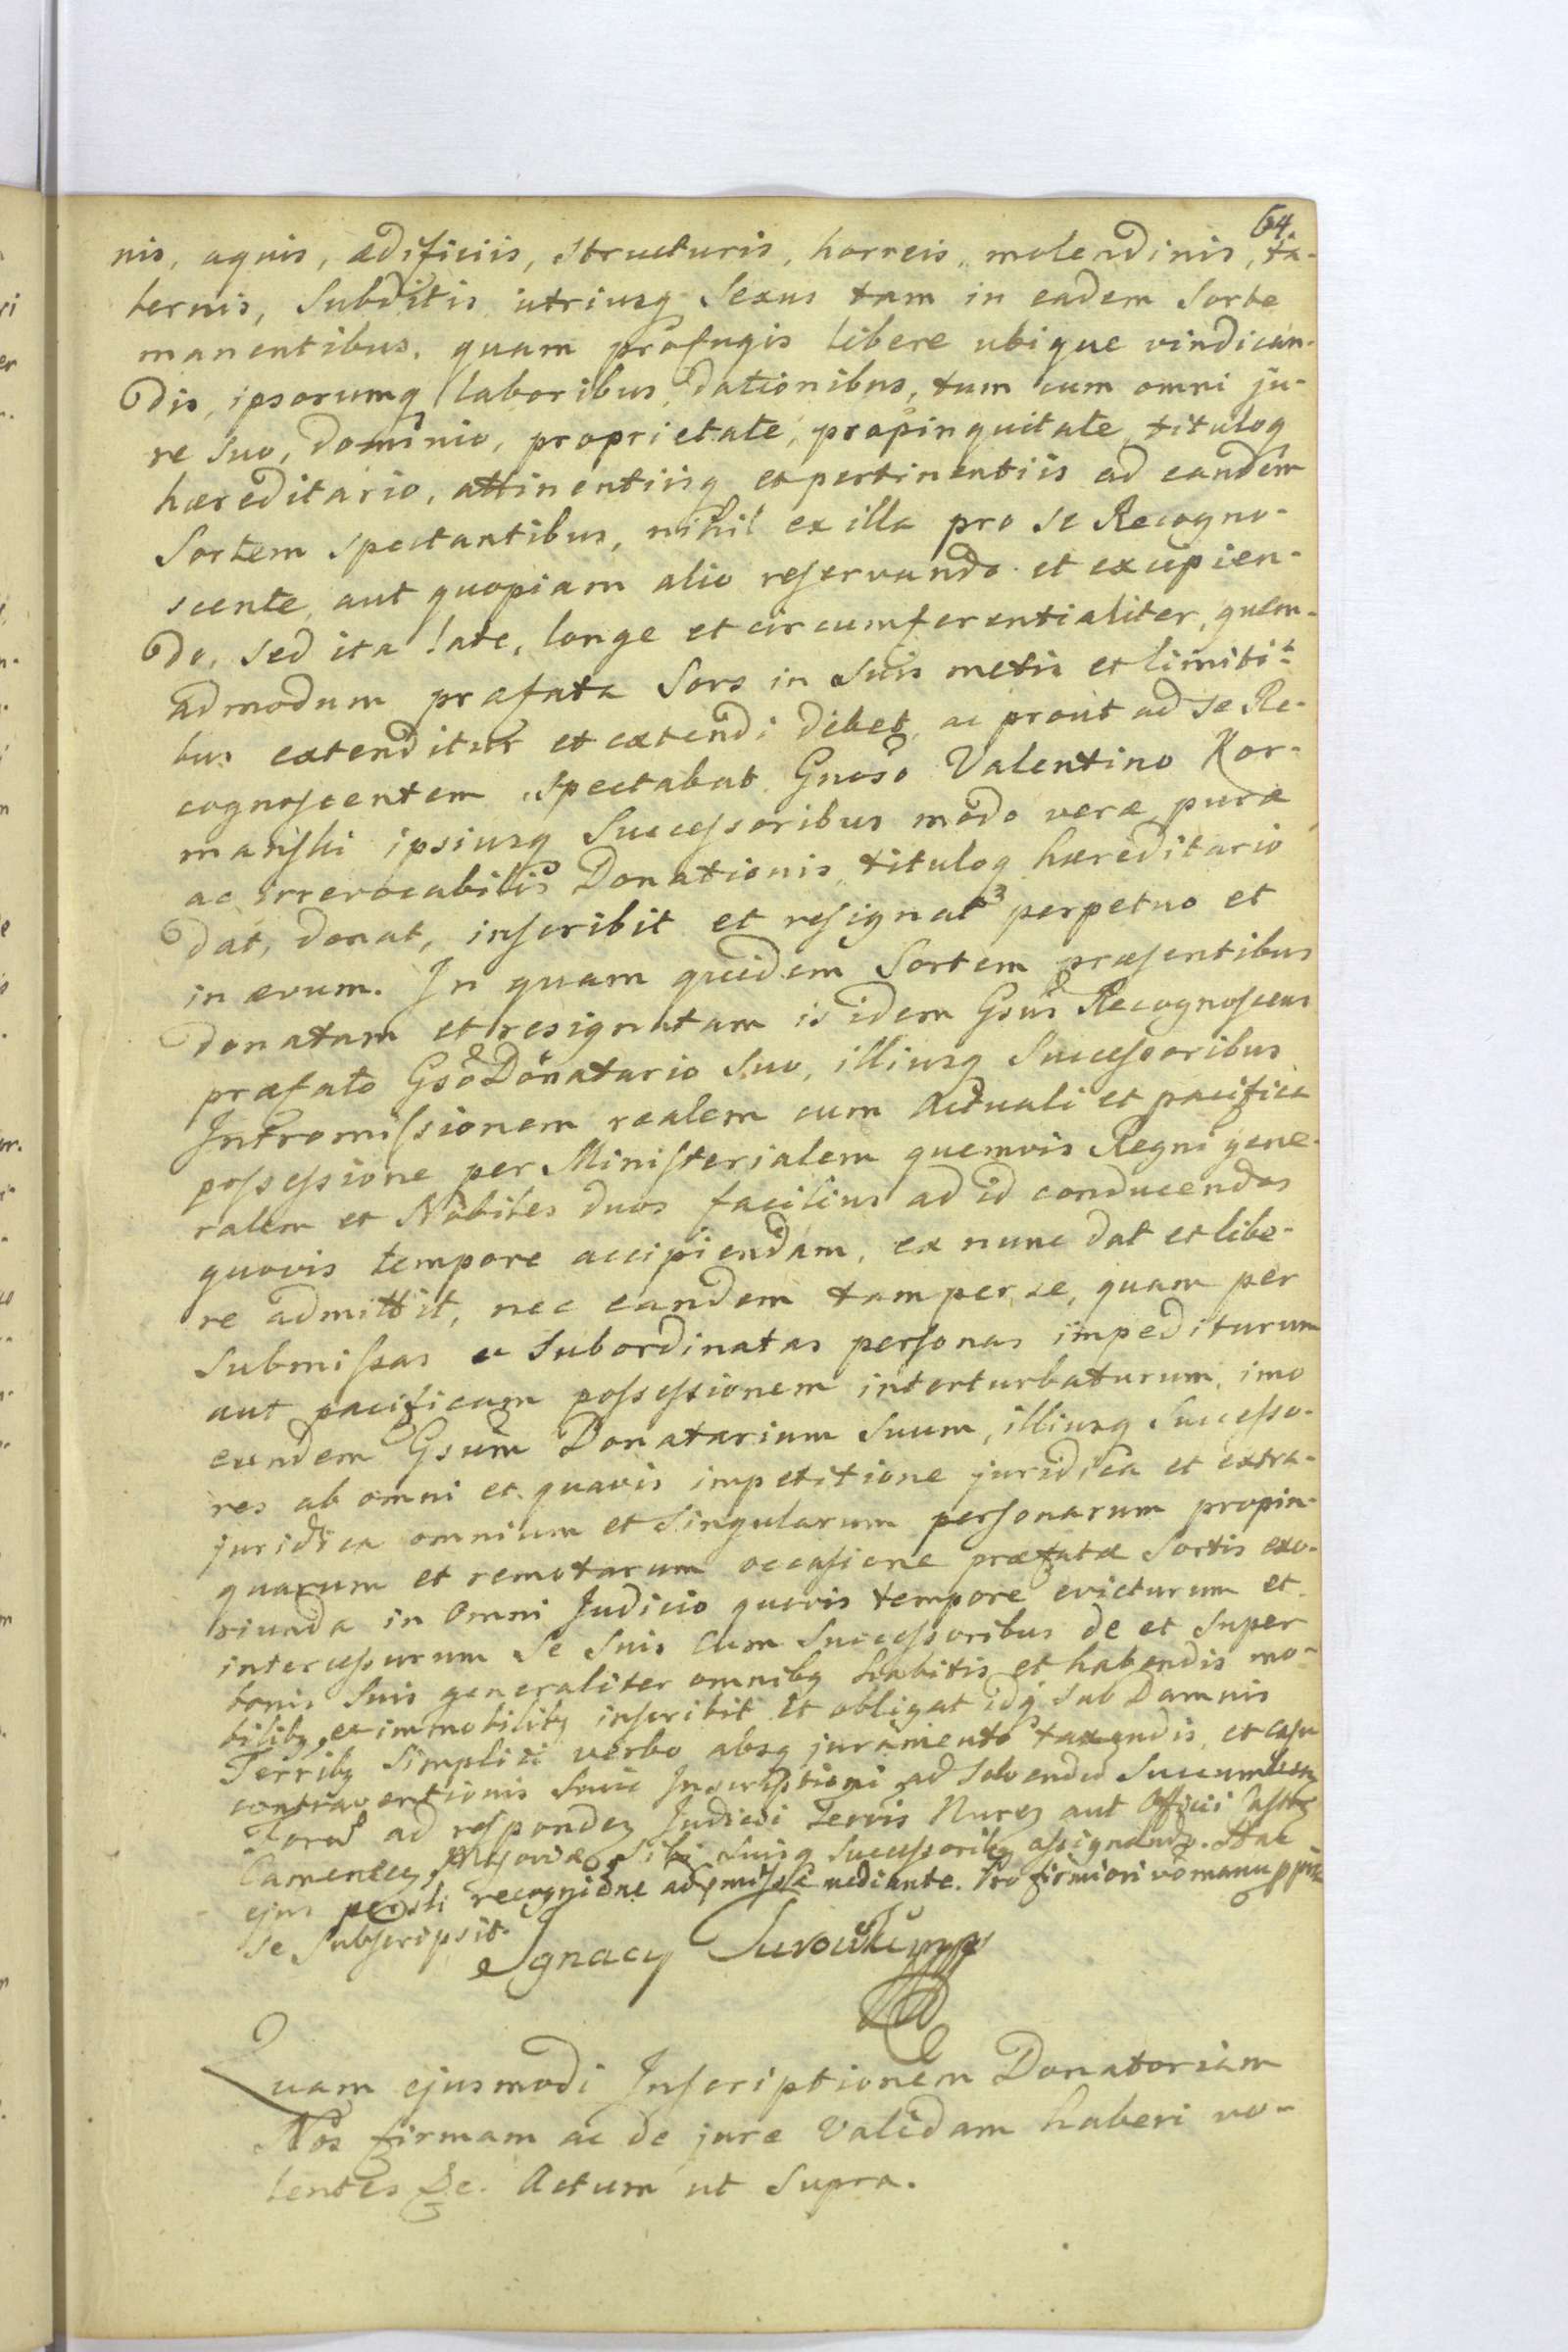 64.
nis, aquis, ædificiis, structuris, horreis, molendinis, ta-
bernis, Subditis utriusq Sexus tam in eadem Sorte
manentibus, quam profugis libere ubique vindican-
dis, ipsorumq laboribus, dationibus, tum cum omni ju-
re suo, dominio, proprietate, propinquitate, tituloq
hæreditario, attinentiisq et pertinentiis ad eandem
Sortem spectantibus, nihil ex illa pro se Recogno-
scente, aut quopiam alio reservando et excipien-
do, sed ita late, longe et circumferentialiter, quem-
admodum præfata Sors in suis metis et limiti-
bus extenditur et extendi debet, ac prout ad se Re-
cognoscentem spectabat Gnoso Valentino Kor-
manski ipsiusq Successoribus modo veræ puræ
ac irrevocabilis Donationis, tituloq hæreditario
dat, donat, inscribit et resignat perpetuo et
in ævum. In quam quidem Sortem præsentibus
donatam et resignatam is idem Gsus Recognoscens
præfato Gso Donatario suo, illiusq Successoribus
Intromissionem realem cum actuali et pacifica
possessione per Ministerialem quemvis Regni gene-
ralem et Nobiles duos facilius ad id conducendos
quovis tempore accipiendam, ex nunc dat et libe-
re admittit, nec eandem tam per se, quam per
submissas et Subordinatas personas impediturum
aut pacificam possessionem interturbaturum, imo
eundem Gsum Donatarium suum, illiusq Successo-
res ab omni et quavis impetitione juridica et extra-
juridica omnium et singularum personarum propin-
quarum et remotarum occasione præfatæ Sortis exo-
riunda in omni Judicio quovis tempore evicturum et
intercessurum se suis cum Successoribus de et super
bonis suis generaliter omnibq habitis et habendis mo-
bilibq et immobilibq inscribit et obligat idq sub Damnis
Terribq Simplici verbo absq juramento taxandis, et casu
contraventionis suæ Inscriptioni ad solvendum
ad Judicii Terris Nurez aut Officii
sibi suisq Successoribq assignando. Hac
ejus recognitione mediante. Pro firmiori manu
se Subscripsit.
Ignacy
Quam ejusmodi Inscriptionem Donatoriam
Nos firmam ac de jure Validam haberi vo-
lentes &c. Actum ut Supra.